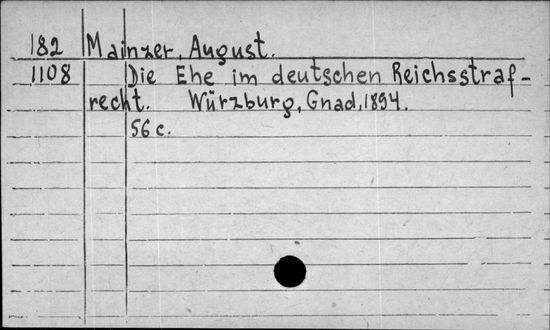 182 Mainzer, August.
1108 Die Ehe im deutschen Reichsstraf-
recht. Würzburg, Gnad, 1894.
56 c.